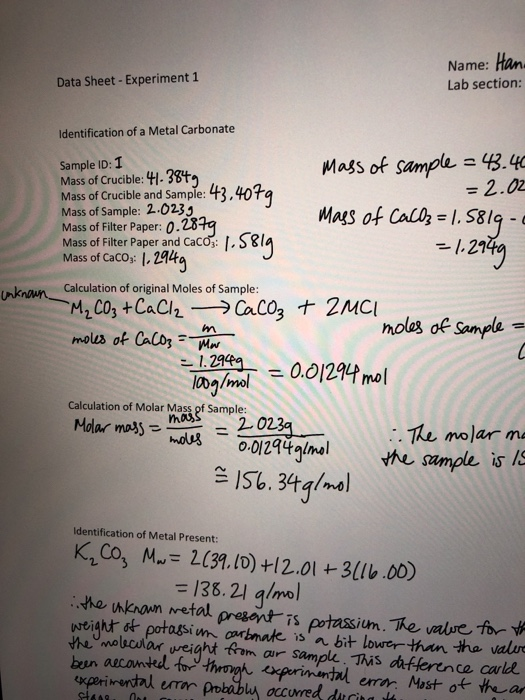 Name: Han
Data Sheet - Experiment 1
Lab section:
Identification of a Metal Carbonate
Sample ID: I
Mass of Crucible: 41.384g
Mass of Crucible and Sample: 43.407g
Mass of Sample: 2.023g
Mass of Filter Paper: 0.287g
Mass of Filter Paper and CaCO₃: 1.581g
Mass of CaCO₃: 1.294g
Mass of sample = 43.40
= 2.02
Mass of CaCO₃ = 1.581g -
= 1.294g
Calculation of original Moles of Sample:
unknown
M₂CO₃ + CaCl₂ → CaCO₃ + 2MCl
moles of CaCO₃ = m/Mw
= 1.294g/100g/mol = 0.01294 mol
moles of sample =
Calculation of Molar Mass of Sample:
Molar mass = mass/moles = 2.023g/0.01294g/mol
≅ 156.34g/mol
∴ The molar ma
the sample is 15
Identification of Metal Present:
K₂CO₃ Mw = 2(39.10) + 12.01 + 3(16.00)
= 138.21 g/mol
∴ the unknown metal present is potassium. The value for th
weight of potassium carbonate is a bit lower than the value
the molecular weight from our sample. This difference could
been accounted for through experimental error. Most of the
experimental error probably occurred during the